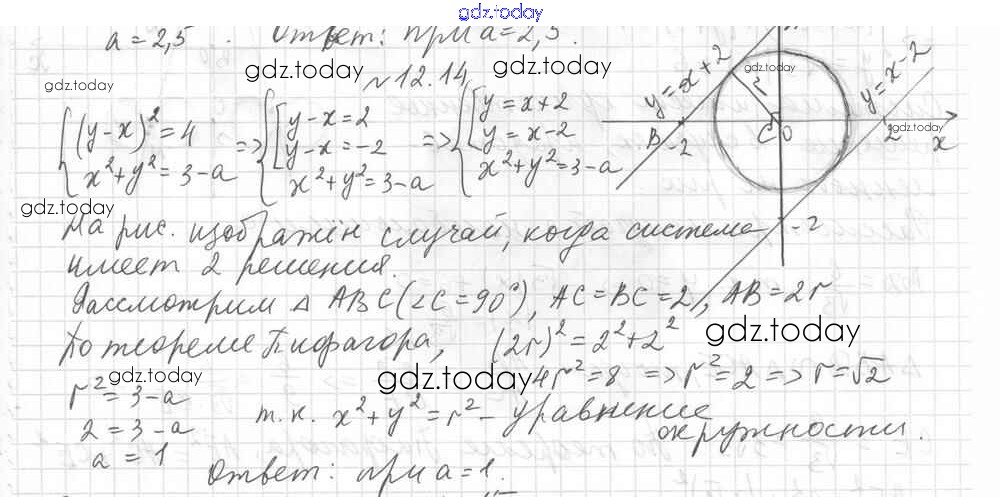 gdz.today
a = 2,5. Ответ: при a = 2,5.
gdz.today
gdz.today
gdz.today
№12.14.
{(y-x)²=4
x²+y²=3-a
=> {[y-x=2
y-x=-2
x²+y²=3-a
=> {[y=x+2
y=x-2
x²+y²=3-a
y=x+2
r
gdz.today
y=x-2
B
-2
C
O
2
gdz.today
x
-2
gdz.today
На рис. изображён случай, когда система
имеет 2 решения.
Рассмотрим △ ABC (∠C=90°), AC=BC=2, AB=2r
По теореме Пифагора, (2r)²=2²+2²
gdz.today
gdz.today
gdz.today
4r²=8 => r²=2 => r=√2
r²=3-a
т.к. x²+y²=r² - уравнение
окружности.
2=3-a
a=1
Ответ: при a=1.